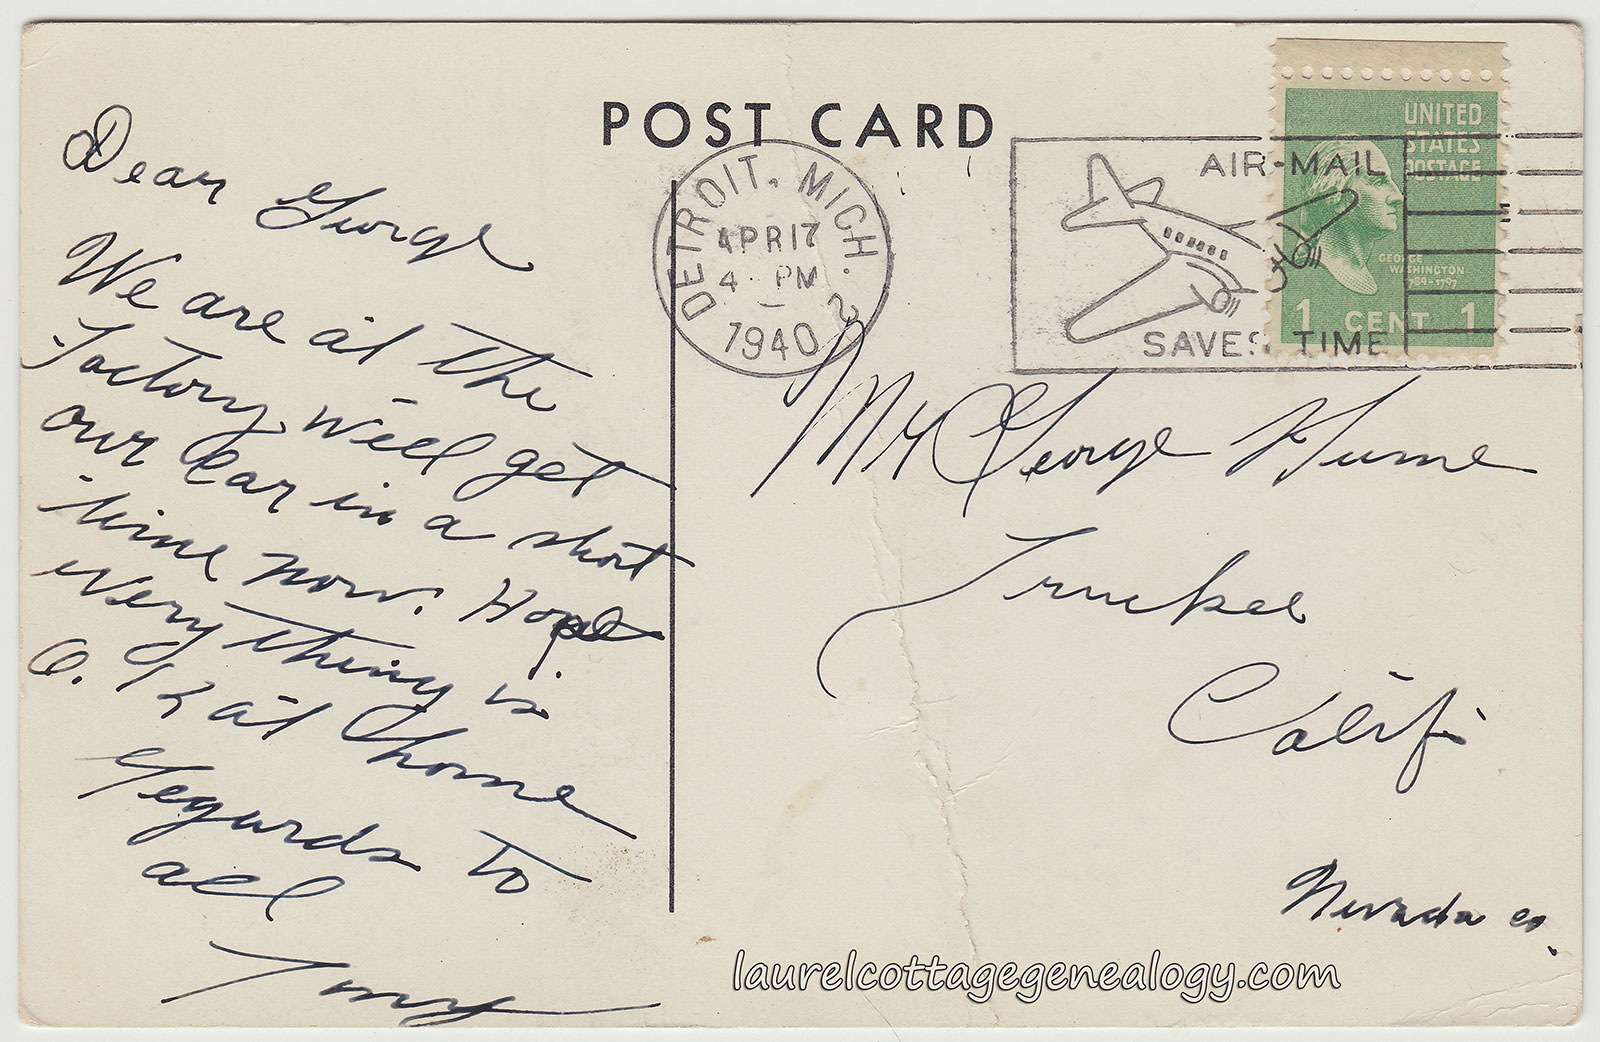 POST CARD
DETROIT, MICH. 2
APR 17
4 PM
1940
AIR-MAIL
SAVES TIME
UNITED
STATES
POSTAGE
GEORGE
WASHINGTON
1789-1797
1 CENT 1
Dear George
We are at the
Factory, will get
our car in a short
time now. Hope
every thing is
O.K at home
Regards to
all
Tony
Mr George Hume
Truckee
Calif
Nevada co.
laurelcottagegenealogy.com